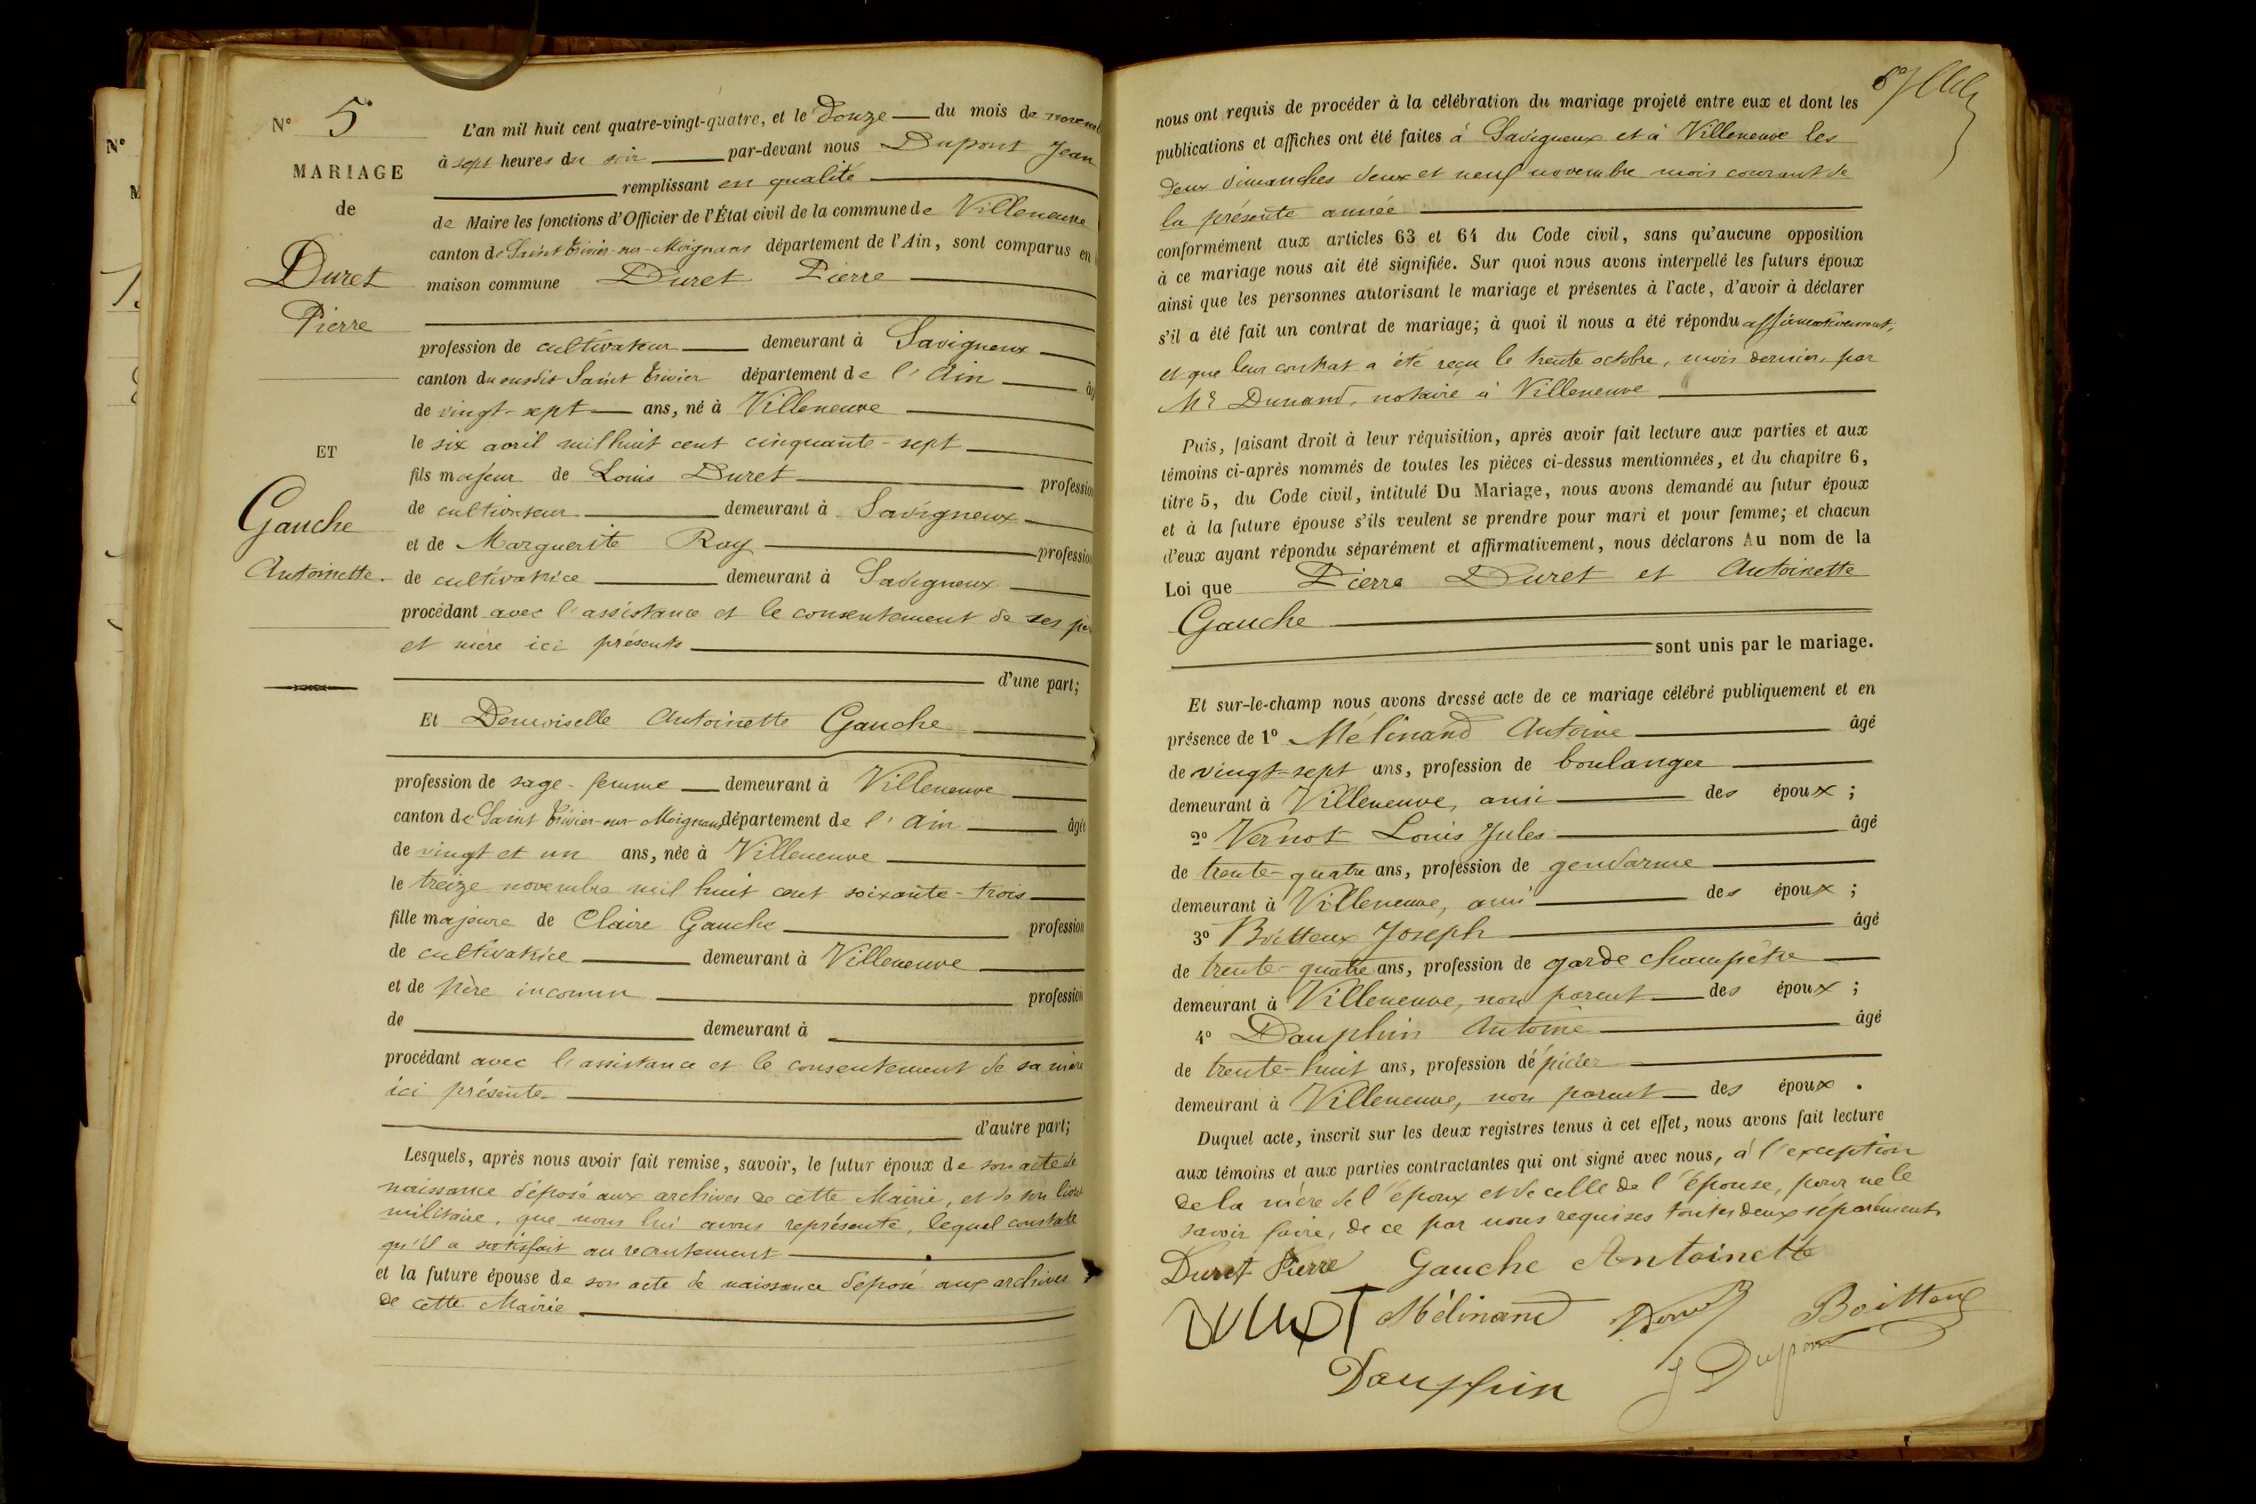 N° 5
MARIAGE
de
Duret
Pierre
ET
Gauche
Antoinette.
L'an mil huit cent quatre-vingt-quatre, et le Douze du mois de novem
à sept heures du soir par-devant nous Dupont Jean
remplissant en qualité
de Maire les fonctions d'Officier de l'État civil de la commune de Villeneuve
canton de Saint Trivier-sur-Moignans département de l'Ain, sont comparus en
maison commune Duret Pierre
profession de cultivateur demeurant à Savigneux
canton du susdit Saint Trivier département de l'Ain âg
de vingt-sept ans, né à Villeneuve
le six avril mil huit cent cinquante-sept
fils majeur de Louis Duret profession
de cultivateur demeurant à Savigneux
et de Marguerite Ray profession
de cultivatrice demeurant à Savigneux
procédant avec l'assistance et le consentement de ses pèr
et mère ici présents
d'une part;
Et Demoiselle Antoinette Gauche
profession de sage-femme demeurant à Villeneuve
canton de Saint Trivier-sur-Moignans département de l'Ain âgée
de vingt et un ans, née à Villeneuve
le treize novembre mil huit cent soixante-trois
fille majeure de Claire Gauche profession
de cultivatrice demeurant à Villeneuve
et de père inconnu profession
de demeurant à
procédant avec l'assistance et le consentement de sa mère
ici présente
d'autre part;
Lesquels, après nous avoir fait remise, savoir, le futur époux de son acte de
naissance déposé aux archives de cette Mairie, et de son livret
militaire, que nous lui avons représenté, lequel constate
qu'il a satisfait au recrutement
et la future épouse de son acte de naissance déposé aux archives
de cette Mairie
nous ont requis de procéder à la célébration du mariage projeté entre eux et dont les
publications et affiches ont été faites à Savigneux et à Villeneuve les
deux dimanches deux et neuf novembre mois courant de
la présente année
conformément aux articles 63 et 64 du Code civil, sans qu'aucune opposition
à ce mariage nous ait été signifiée. Sur quoi nous avons interpellé les futurs époux
ainsi que les personnes autorisant le mariage et présentes à l'acte, d'avoir à déclarer
s'il a été fait un contrat de mariage; à quoi il nous a été répondu affirmativement,
et que leur contrat a été reçu le trente octobre, mois dernier, par
Me Dunand, notaire à Villeneuve
Puis, faisant droit à leur réquisition, après avoir fait lecture aux parties et aux
témoins ci-après nommés de toutes les pièces ci-dessus mentionnées, et du chapitre 6,
titre 5, du Code civil, intitulé Du Mariage, nous avons demandé au futur époux
et à la future épouse s'ils veulent se prendre pour mari et pour femme; et chacun
d'eux ayant répondu séparément et affirmativement, nous déclarons Au nom de la
Loi que Pierre Duret et Antoinette
Gauche
sont unis par le mariage.
Et sur-le-champ nous avons dressé acte de ce mariage célébré publiquement et en
présence de 1° Mélinand Antoine âgé
de vingt-sept ans, profession de boulanger
demeurant à Villeneuve, ami des époux;
2° Vernot Louis Jules âgé
de trente-quatre ans, profession de gendarme
demeurant à Villeneuve, ami des époux;
3° Boitteux Joseph âgé
de trente-quatre ans, profession de garde champêtre
demeurant à Villeneuve, non parent des époux;
4° Dauphin Antoine âgé
de trente-huit ans, profession d'épicier
demeurant à Villeneuve, non parent des époux.
Duquel acte, inscrit sur les deux registres tenus à cet effet, nous avons fait lecture
aux témoins et aux parties contractantes qui ont signé avec nous, à l'exception
de la mère de l'époux et de celle de l'épouse, pour ne le
savoir faire, de ce par nous requises toutes deux séparément.
Duret Pierre Gauche Antoinette
Duret Mélinand Boitteux
Dauphin J Dupont